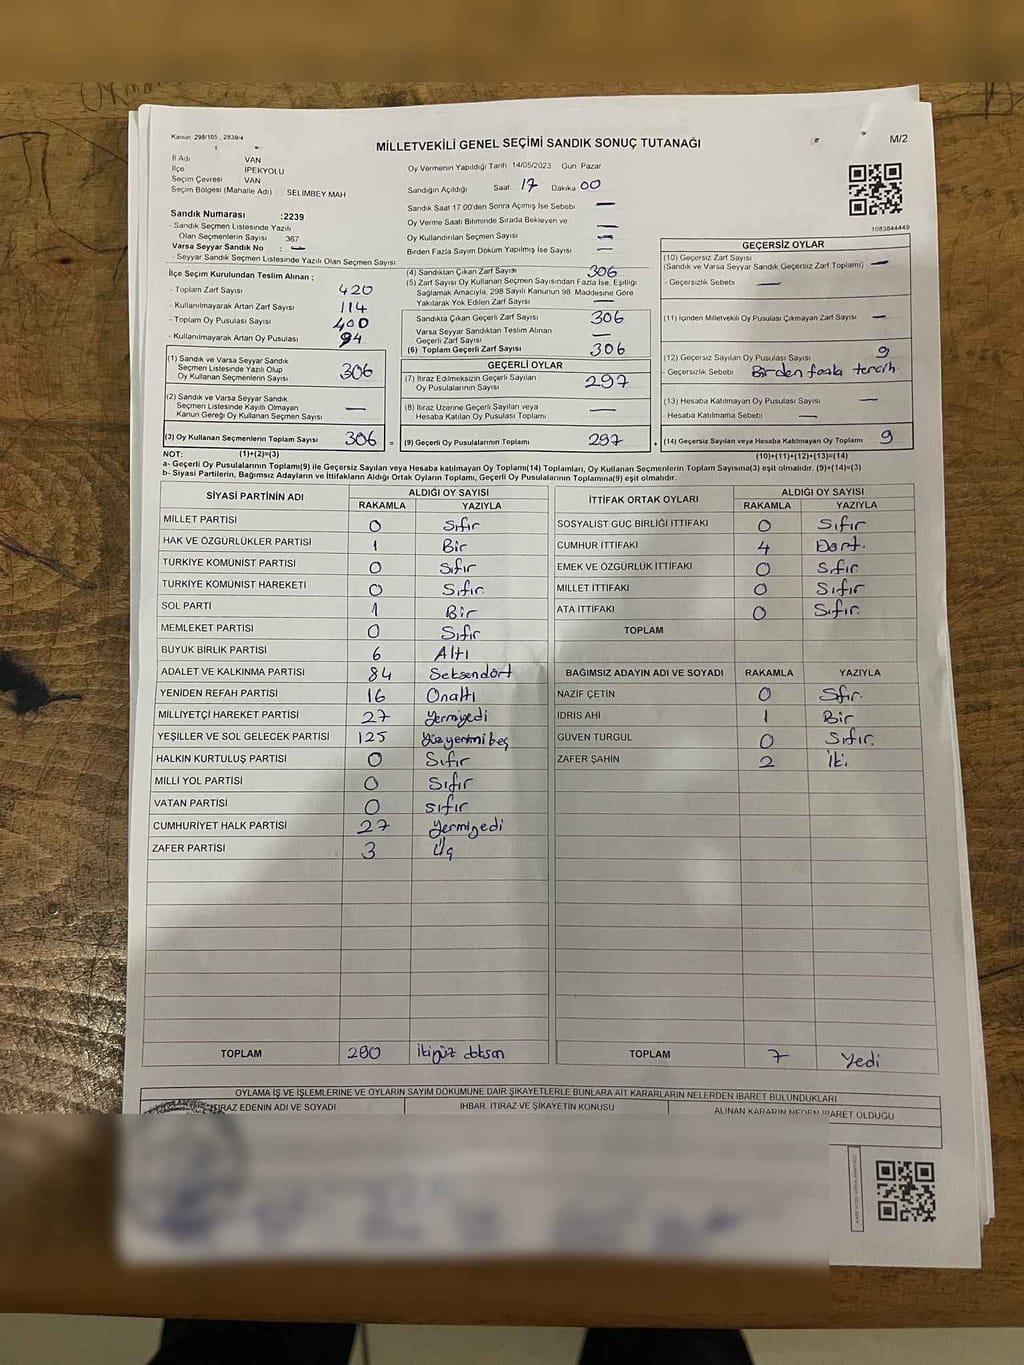 Kanun: 298/105 , 2839/4
MİLLETVEKİLİ GENEL SEÇİMİ SANDIK SONUÇ TUTANAĞI
M/2
İl Adı VAN
İlçe İPEKYOLU
Seçim Çevresi VAN
Seçim Bölgesi (Mahalle Adı) SELİMBEY MAH
Oy Vermenin Yapıldığı Tarih 14/05/2023 Gün Pazar
Sandığın Açıldığı Saat 17 Dakika 00
Sandık Saat 17 00'den Sonra Açımış İse Sebebi —
Oy Verme Saati Bitiminde Sırada Bekleyen ve
Oy Kullandırılan Seçmen Sayısı —
Birden Fazla Sayım Döküm Yapılmış İse Sayısı —
Sandık Numarası :2239
- Sandık Seçmen Listesinde Yazılı
Olan Seçmenlerin Sayısı 367
Varsa Seyyar Sandık No : —
- Seyyar Sandık Seçmen Listesinde Yazılı Olan Seçmen Sayısı
İlçe Seçim Kurulundan Teslim Alınan ;
- Toplam Zarf Sayısı 420
- Kullanılmayarak Artan Zarf Sayısı 114
- Toplam Oy Pusulası Sayısı 400
- Kullanılmayarak Artan Oy Pusulası 94
(1) Sandık ve Varsa Seyyar Sandık
Seçmen Listesinde Yazılı Olup
Oy Kullanan Seçmenlerin Sayısı 306
(2) Sandık ve Varsa Seyyar Sandık
Seçmen Listesinde Kayıtlı Olmayan
Kanun Gereği Oy Kullanan Seçmen Sayısı —
(3) Oy Kullanan Seçmenlerin Toplam Sayısı 306 =
(4) Sandıktan Çıkan Zarf Sayısı 306
(5) Zarf Sayısı Oy Kullanan Seçmen Sayısından Fazla İse, Eşitliği
Sağlamak Amacıyla, 298 Sayılı Kanunun 98. Maddesine Göre
Yakılarak Yok Edilen Zarf Sayısı —
Sandıkta Çıkan Geçerli Zarf Sayısı 306
Varsa Seyyar Sandıktan Teslim Alınan
Geçerli Zarf Sayısı —
(6) Toplam Geçerli Zarf Sayısı 306
GEÇERLİ OYLAR
(7) İtiraz Edilmeksizin Geçerli Sayılan
Oy Pusulalarının Sayısı 297
(8) İtiraz Üzerine Geçerli Sayılan veya
Hesaba Katılan Oy Pusulası Toplamı —
(9) Geçerli Oy Pusulalarının Toplamı 297
1683844449
GEÇERSİZ OYLAR
(10) Geçersiz Zarf Sayısı
(Sandık ve Varsa Seyyar Sandık Geçersiz Zarf Toplamı) —
- Geçersizlik Sebebi —
(11) İçinden Milletvekili Oy Pusulası Çıkmayan Zarf Sayısı —
(12) Geçersiz Sayılan Oy Pusulası Sayısı 9
- Geçersizlik Sebebi Birden fazla tercih
(13) Hesaba Katılmayan Oy Pusulası Sayısı —
- Hesaba Katılmama Sebebi —
(14) Geçersiz Sayılan veya Hesaba Katılmayan Oy Toplamı 9
NOT: (1)+(2)=(3) (10)+(11)+(12)+(13)=(14)
a- Geçerli Oy Pusulaların Toplamı(9) ile Geçersiz Sayılan veya Hesaba katılmayan Oy Toplamı(14) Toplamları, Oy Kullanan Seçmenlerin Toplam Sayısına(3) eşit olmalıdır. (9)+(14)=(3)
b- Siyasi Partilerin, Bağımsız Adayların ve İttifakların Aldığı Ortak Oyların Toplamı, Geçerli Oy Pusulalarının Toplamına(9) eşit olmalıdır.
SİYASİ PARTİNİN ADI ALDIĞI OY SAYISI
RAKAMLA YAZIYLA
MİLLET PARTİSİ 0 Sıfır
HAK VE ÖZGÜRLÜKLER PARTİSİ 1 Bir
TÜRKİYE KOMÜNİST PARTİSİ 0 Sıfır
TÜRKİYE KOMÜNİST HAREKETİ 0 Sıfır.
SOL PARTİ 1 Bir
MEMLEKET PARTİSİ 0 Sıfır
BÜYÜK BİRLİK PARTİSİ 6 Altı
ADALET VE KALKINMA PARTİSİ 84 Seksendört
YENİDEN REFAH PARTİSİ 16 Onaltı
MİLLİYETÇİ HAREKET PARTİSİ 27 Yermiyedi
YEŞİLLER VE SOL GELECEK PARTİSİ 125 Yüzyermibeş
HALKIN KURTULUŞ PARTİSİ 0 Sıfır
MİLLİ YOL PARTİSİ 0 Sıfır
VATAN PARTİSİ 0 sıfır
CUMHURİYET HALK PARTİSİ 27 Yermiyedi
ZAFER PARTİSİ 3 Üç
TOPLAM 290 ikiyüz doksan
İTTİFAK ORTAK OYLARI ALDIĞI OY SAYISI
RAKAMLA YAZIYLA
SOSYALİST GÜÇ BİRLİĞİ İTTİFAKI 0 Sıfır
CUMHUR İTTİFAKI 4 Dört.
EMEK VE ÖZGÜRLÜK İTTİFAKI 0 Sıfır
MİLLET İTTİFAKI 0 Sıfır
ATA İTTİFAKI 0 Sıfır.
TOPLAM
BAĞIMSIZ ADAYIN ADI VE SOYADI RAKAMLA YAZIYLA
NAZİF ÇETİN 0 Sfır.
İDRİS AHİ 1 Bir
GÜVEN TURGUL 0 Sıfır.
ZAFER ŞAHİN 2 İki
TOPLAM 7 Yedi
OYLAMA İŞ VE İŞLEMLERİNE VE OYLARIN SAYIM DÖKÜMÜNE DAİR ŞİKAYETLERLE BUNLARA AİT KARARLARIN NELERDEN İBARET BULUNDUKLARI
İTİRAZ EDENİN ADI VE SOYADI İHBAR, İTİRAZ VE ŞİKAYETİN KONUSU ALINAN KARARIN NEDEN İBARET OLDUĞU